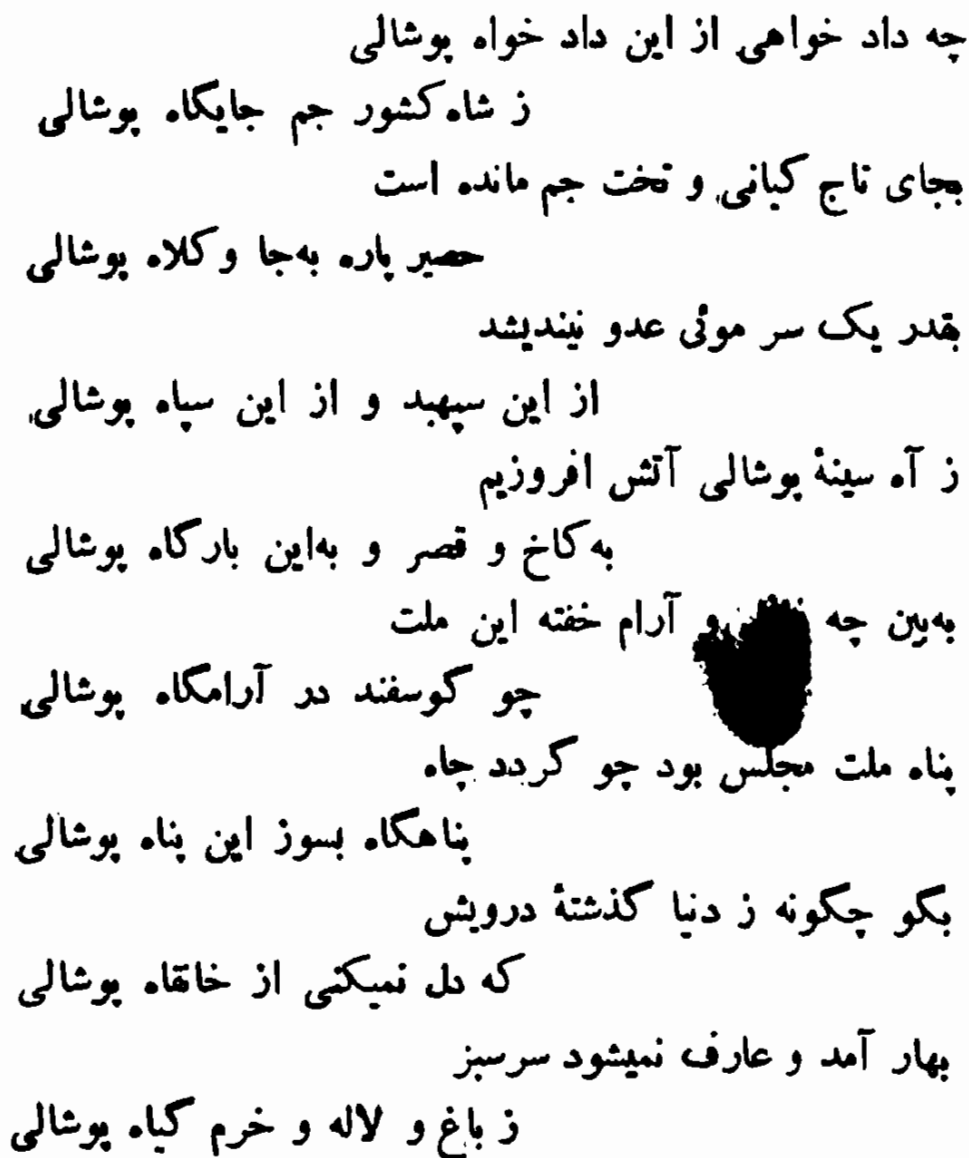 چه داد خواهی از این داد خواه پوشالی
ز شاه کشور جم جایگاه پوشالی
بجای تاج کیانی و تخت جم مانده است
حصیر پاره به‌جا و کلاه پوشالی
بقدر یک سر موئی عدو نیندیشد
از این سپهبد و از این سپاه پوشالی
ز آه سینهٔ پوشالی آتش افروزیم
به کاخ و قصر و به‌این بارگاه پوشالی
به‌بین چه و آرام خفته این ملت
چو گوسفند در آرامگاه پوشالی
پناه ملت مجلس بود چو گردد چاه
پناهگاه بسوز این پناه پوشالی
بگو چگونه ز دنیا گذشتهٔ درویش
که دل نمیکنی از خانقاه پوشالی
بهار آمد و عارف نمیشود سرسبز
ز باغ و لاله و خرم گیاه پوشالی